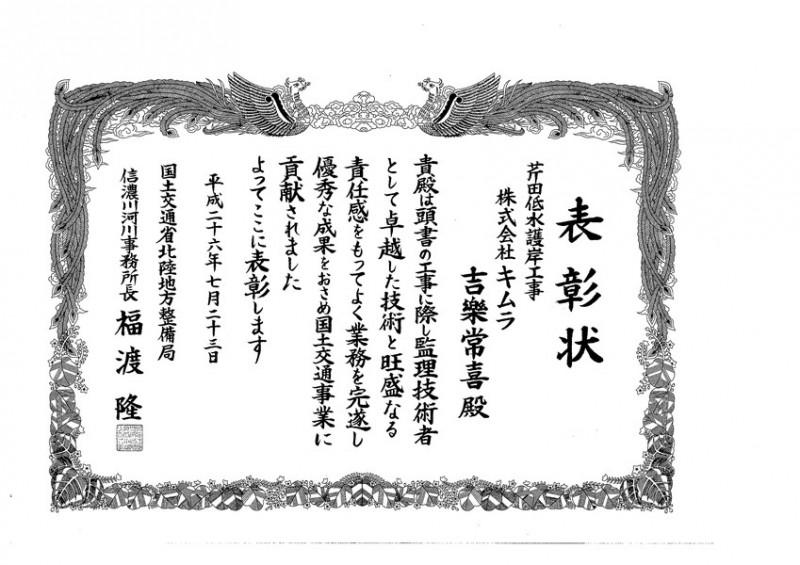 表彰状
芹田低水護岸工事
株式会社 キムラ
吉樂常喜殿
貴殿は頭書の工事に際し監理技術者
として卓越した技術と旺盛なる
責任感をもってよく業務を完遂し
優秀な成果をおさめ国土交通事業に
貢献されました
よってここに表彰します
平成二十六年七月二十三日
国土交通省北陸地方整備局
信濃川河川事務所長 福渡隆